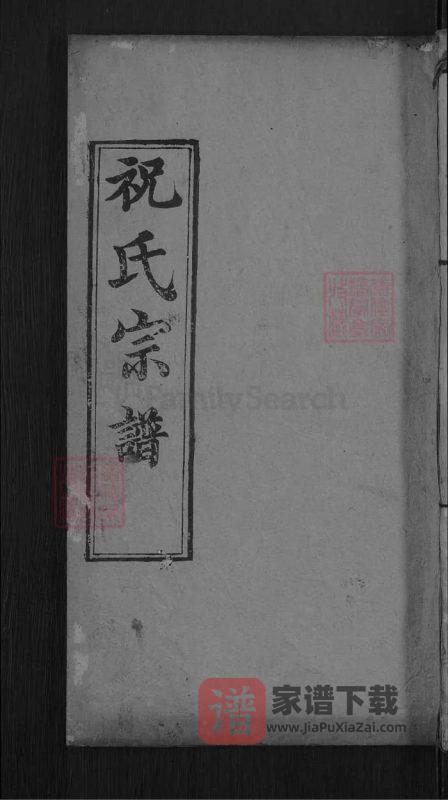 祝氏宗譜
FamilySearch
谱
家谱下载
www.JiaPuXiaZai.com